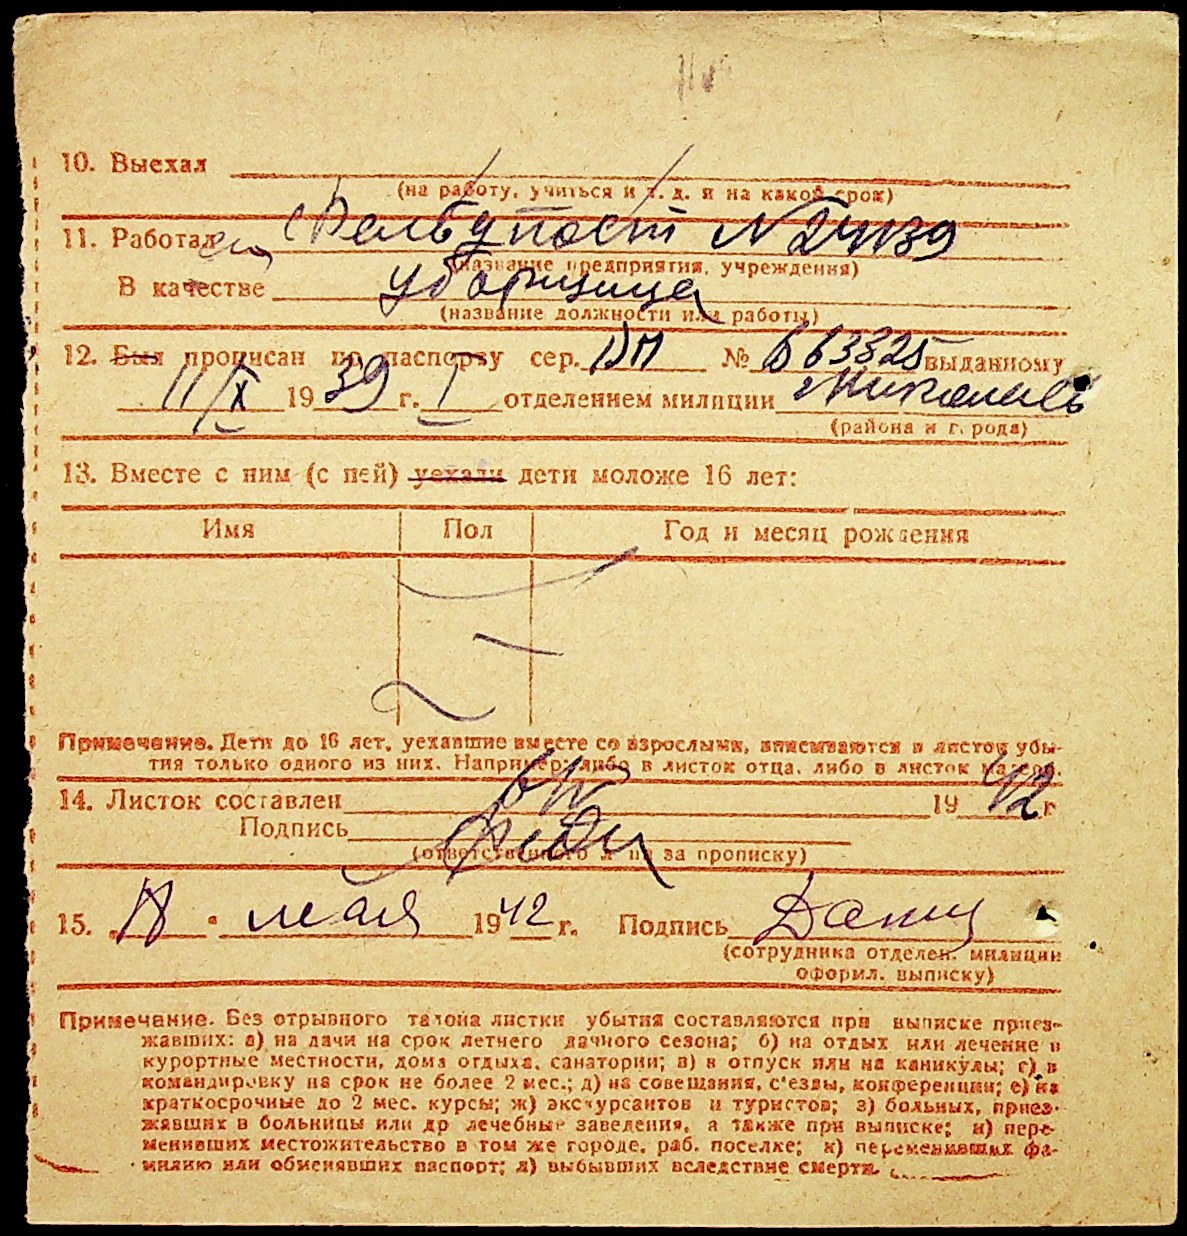 10. Выехал
(на работу, учиться и т. д. и на какой срок)
11. Работал
(название предприятия, учреждения)
В качестве уборщица
(название должности или работы)
12. Был прописан по паспорту сер. № 663325 выданному
11/X 1939 г. I отделением милиции
(района и города)
13. Вместе с ним (с ней) уехали дети моложе 16 лет:
Имя Пол Год и месяц рождения
Примечание. Дети до 16 лет, уехавшие вместе со взрослыми, вписываются в листок убы-
тия только одного из них. Например: либо в листок отца, либо в листок матери.
14. Листок составлен 1942 г
Подпись
(ответственного л па за прописку)
15. мая 1942 г. Подпись
(сотрудника отделен. милиции
оформил. выписку)
Примечание. Без отрывного талона листки убытия составляются при выписке приез-
жавших: а) на дачи на срок летнего дачного сезона; б) на отдых или лечение в
курортные местности, дома отдыха, санатории; в) в отпуск или на каникулы; г) в
командировку на срок не более 2 мес.; д) на совещания, с'езды, конференции; е) на
краткосрочные до 2 мес. курсы; ж) экскурсантов и туристов; з) больных, приез-
жавших в больницы или др лечебные заведения, а также при выписке; и) пере-
менивших местожительство в том же городе, раб. поселке; к) переменивших фа-
милию или обменявших паспорт; л) выбывших вследствие смерти.